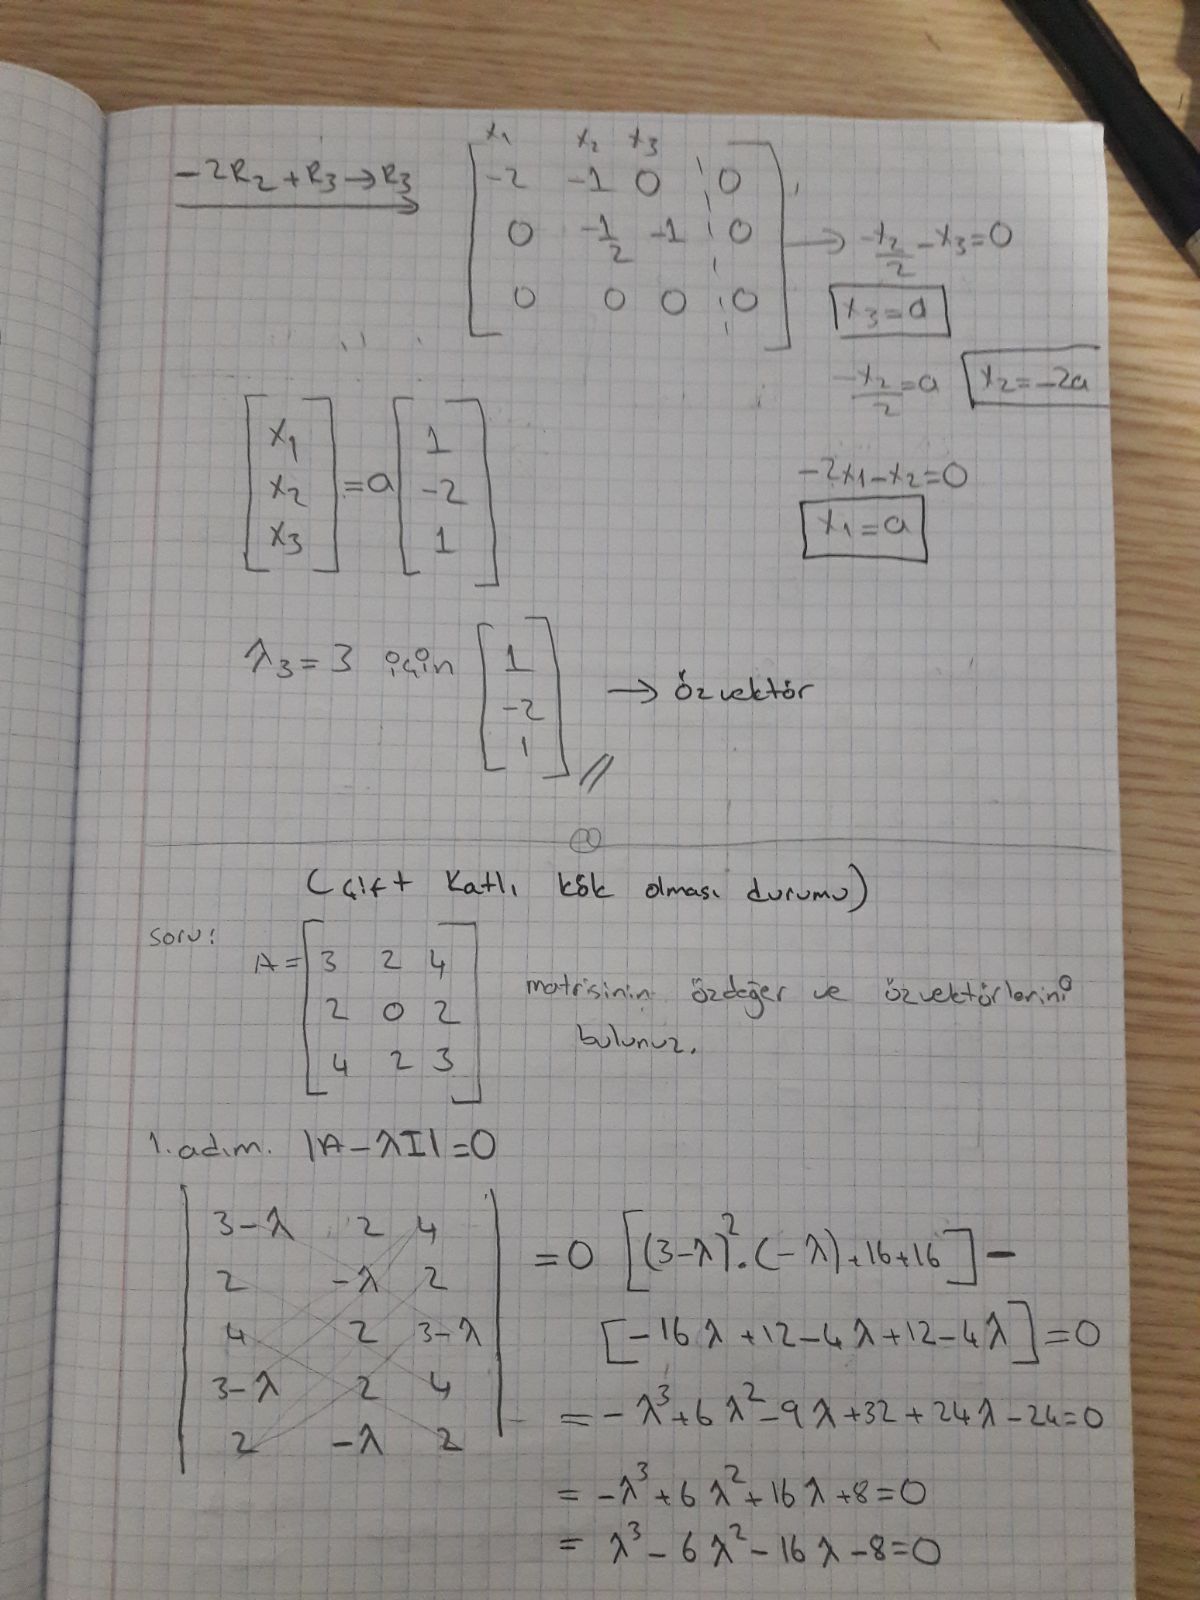 -2R₂+R₃→R₃
x₁ x₂ x₃
-2 -1 0 0
0 -1/2 -1 0 → -x₂/2 - x₃=0
0 0 0 0
x₃=a
-x₂/2=a x₂=-2a
x₁ 1
x₂ =a -2
x₃ 1
-2x₁-x₂=0
x₁=a
λ₃=3 için 1 -2 1 → özvektör
(Çift Katlı kök olması durumu)
soru:
A= 3 2 4
2 0 2
4 2 3
matrisinin özdeğer ve özvektörlerini
bulunuz.
1.adım. |A-λI|=0
3-λ 2 4
2 -λ 2
4 2 3-λ
3-λ 2 4
2 -λ 2
=0 [(3-λ)².(-λ)+16+16]-
[-16λ+12-4λ+12-4λ]=0
=-λ³+6λ²-9λ+32+24λ-24=0
=-λ³+6λ²+16λ+8=0
= λ³-6λ²-16λ-8=0